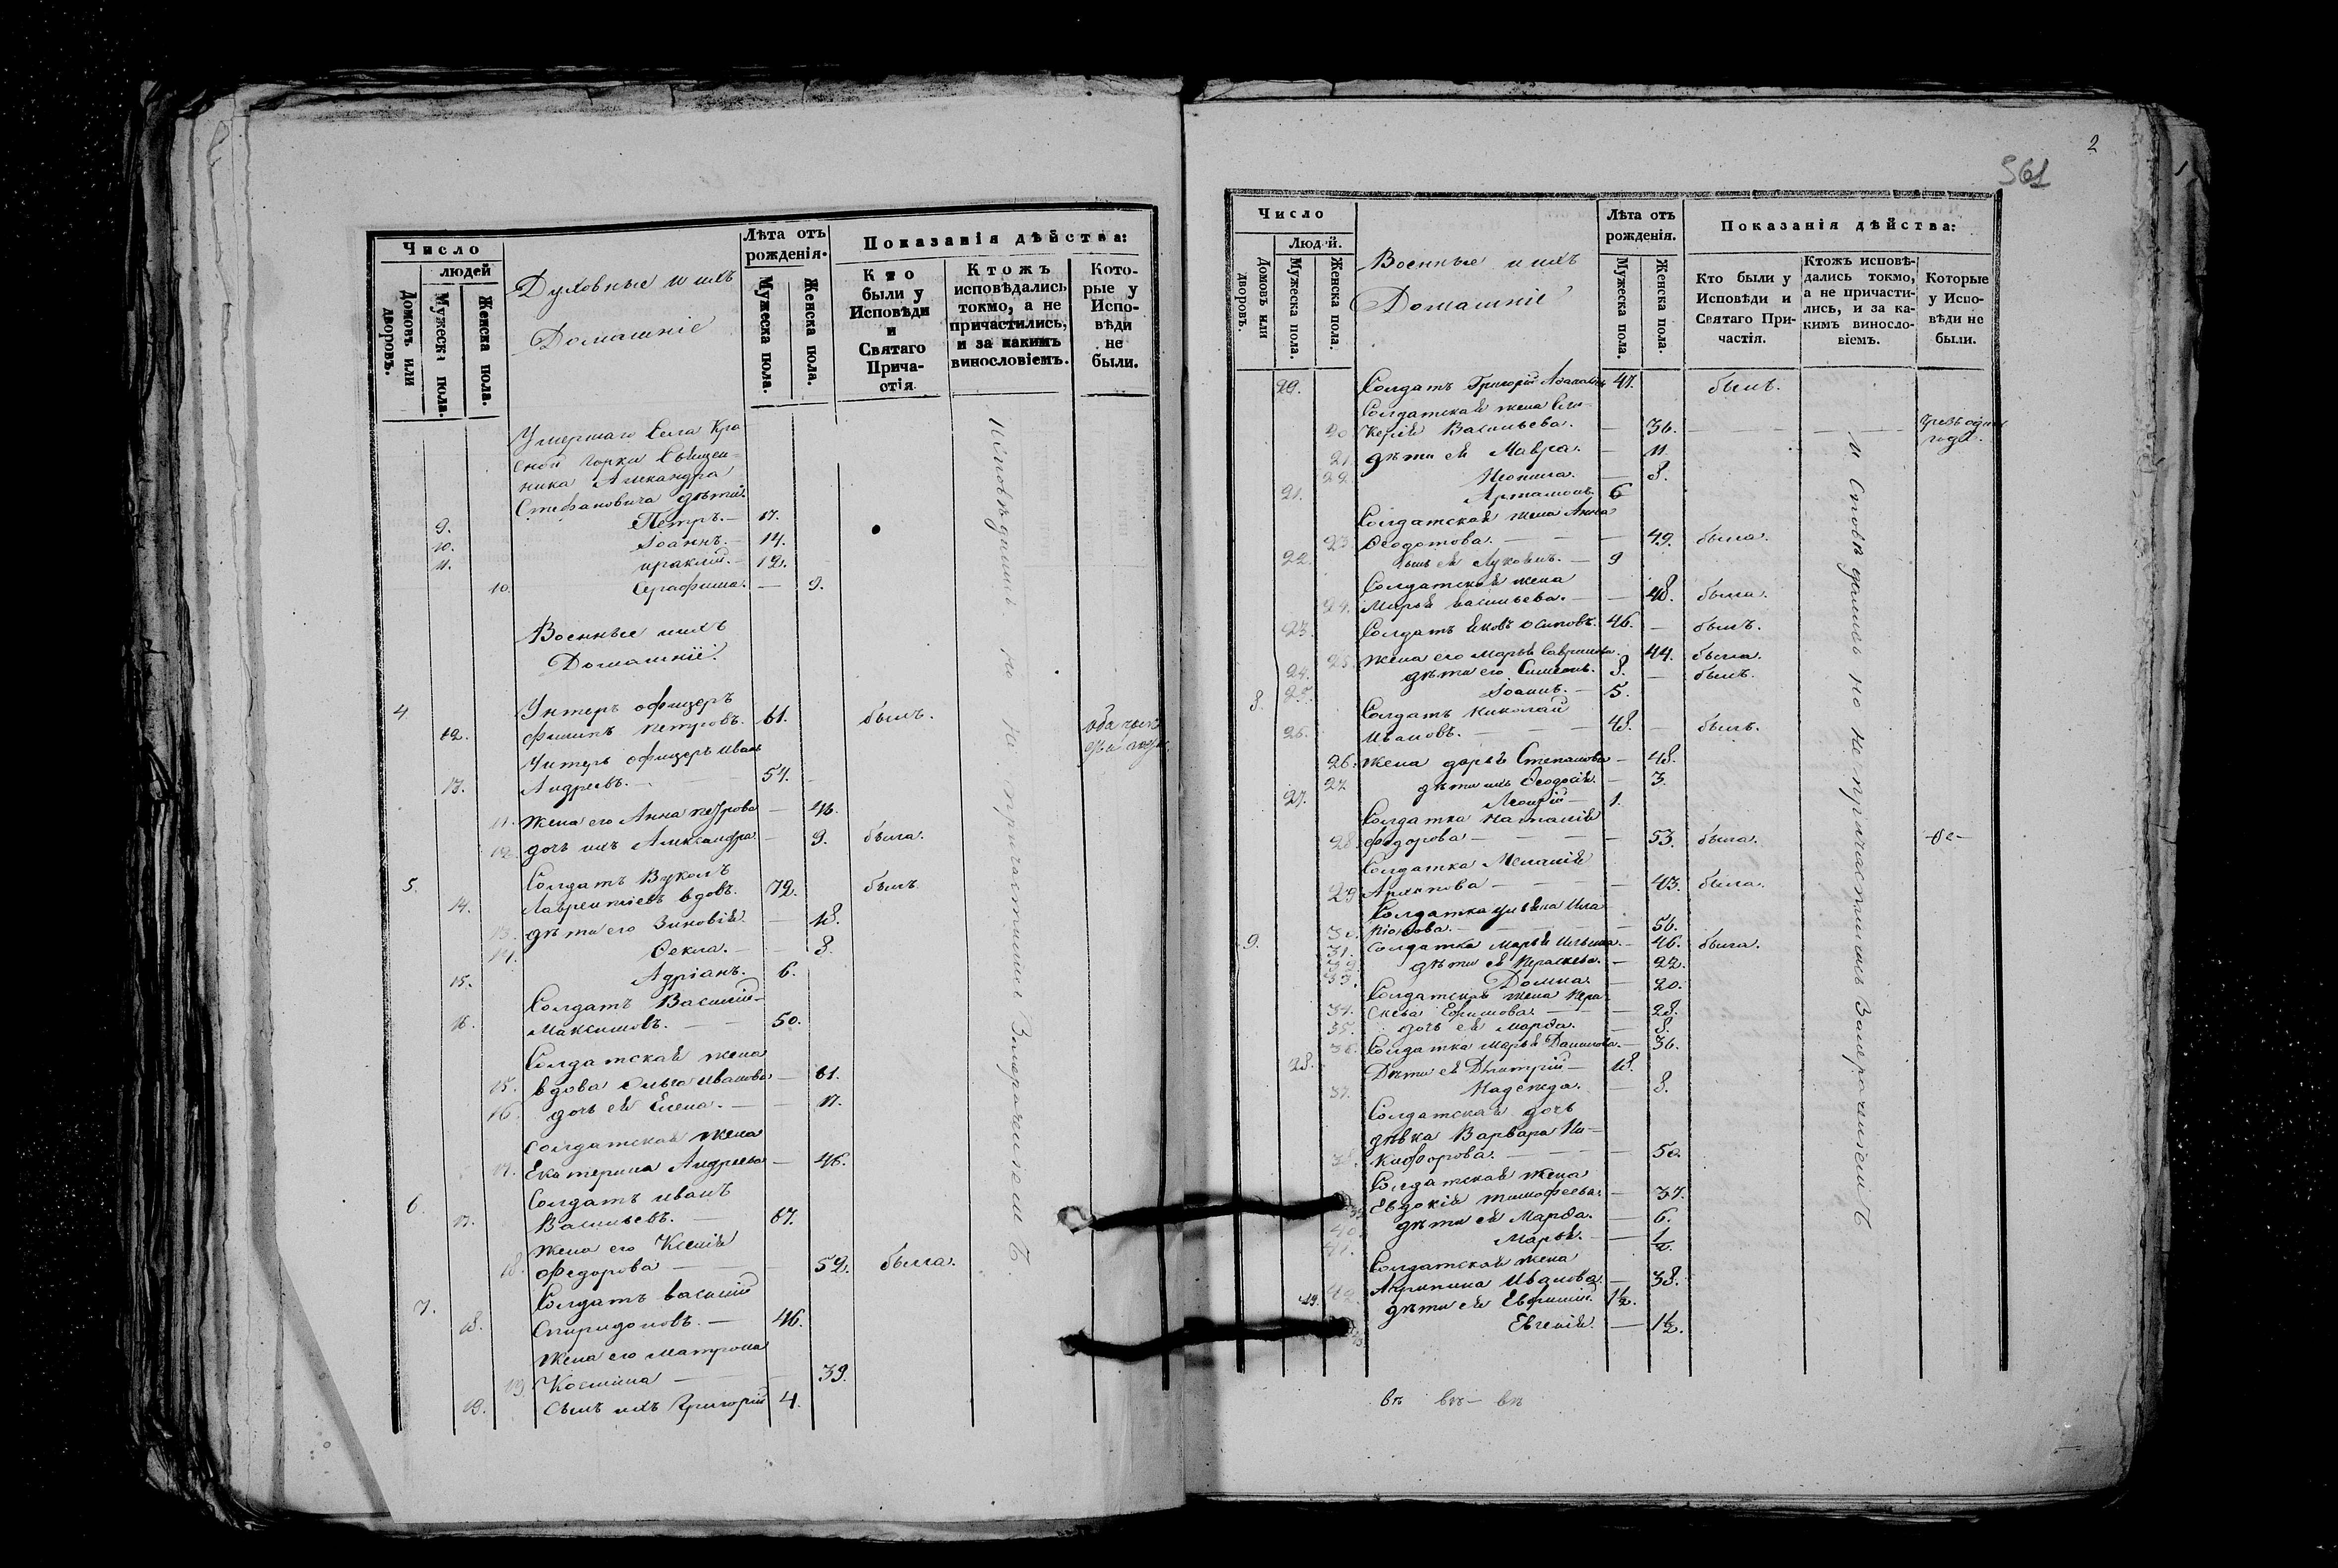 Число
людей
Домовъ или дворовъ.
Мужеска пола.
Женска пола.
Духовные и ихъ
Домашніе
Лѣта отъ рожденія.
Мужеска пола.
Женска пола.
Показанія дѣйства:
Кто были у Исповѣди и Святаго Прича-стія
Ктожъ исповѣдались токмо, а не причастились, и за какимъ винословіемъ.
Кото-рые у Испо-вѣди не были.
Умершаго Села Кра
сной горки Священ-
ника Александра
Стефановича дѣти
9. Петръ. — 17.
10. Іоаннъ. — 14.
11. ираклій. — 12.
10. Серафима. — 9.
Военные ихъ
Домашніе.
4 Унтеръ офицеръ
12. Филипъ Петровъ. 61. былъ.
Унтеръ офицеръ Иванъ
13. Андреевъ. — 54.
11. Жена его Анна петрова — 46.
12. дочь ихъ Александра — 9. была.
5. Солдатъ Вуколъ
14. Лаврентіевъ вдовъ. 72. былъ
13. дѣти его Зиновія. — 18.
14. Ѳекла. — 8.
15. Адріанъ. 6.
Солдатъ Василій
16. Максимовъ. — 50.
Солдатская жена
15. вдова Ольга иванова — 61.
16. дочь ея Елена. — 17.
Солдатская жена
17. Екатерина Андреева — 46.
6. Солдатъ иванъ
17. Васильевъ. — 67.
Жена его Ксенія
18. Федорова — 52. была.
7. Солдатъ василій
18. Спиридоновъ. — 46.
Жена его матрона
19. Космина — 39.
19. Сынъ ихъ Григорій 4.
Исповѣдались но не причастились За нерачениемъ
2
561
Число
Людей.
Домовъ или дворовъ.
Мужеска пола.
Женска пола.
Военные и ихъ
Домашніе
Лѣта отъ рожденія.
Мужеска пола.
Женска пола.
Показанія дѣйства:
Кто были у Исповѣди и Святаго При-частія.
Ктожъ исповѣ-дались токмо, а не причасти-лись, и за ка-кимъ виносло-віемъ.
Которые у Испо-вѣди не были.
20. Солдатъ Григорій 47. былъ.
Солдатская жена
20 Васильева. — 36. — чрезъ одинъ
годъ.
21. дѣти ея Мавра. — 11.
22. — 8.
21. Артамонъ. 6
Солдатская жена Анна
23. Ѳеодотова. — 49. была.
22. сынъ ея — 9
Солдатская жена
24. Марья васильева. — 48. была.
23. Солдатъ Яковъ осиповъ. 46. — былъ.
25. жена его марья — 44. была.
24. дѣти его Симеонъ. 8. — былъ.
25. Іоаннъ. — 5.
8. Солдатъ николай
26. Ивановъ. — 48. — былъ.
26. жена дарья Степанова — 48.
27 дѣти ихъ Ѳеодосія. — 3.
27. 1.
Солдатка наталія
28. федорова — 53. была.
Солдатка Меланія
29 — 43. была.
Солдатка
30. — 56.
9. 31. Солдатка Марья — 46. была.
32. дѣти ея праскева. — 22.
33. Домна. — 20.
Солдатская жена пра-
34. скева Ефимова. — 28.
35. дочь ея марѳа. — 8.
36. Солдатка марья Данилова. — 36.
28. Дѣти ея Дмитрій — 18.
37. Надежда. — 8.
Солдатская дочь
дѣвка Варвара Ни-
38. кифорова. — 50.
Солдатская жена
39 Евдокія тимофеева. — 37.
40. дѣти ея Марѳа. — 6.
41. Марья. — 1/2.
Солдатская жена
42. Агрипина Иванова. — 38.
29. дѣти ея Евфимій. 1½.
43 Евгенія. — 1½.
Исповѣдались но не причастились За нерачениемъ
въ въ — въ